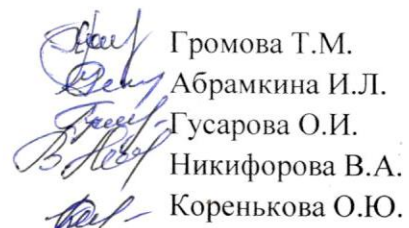 Громова Т.М.
Абрамкина И.Л.
Гусарова О.И.
Никифорова В.А.
Коренькова О.Ю.